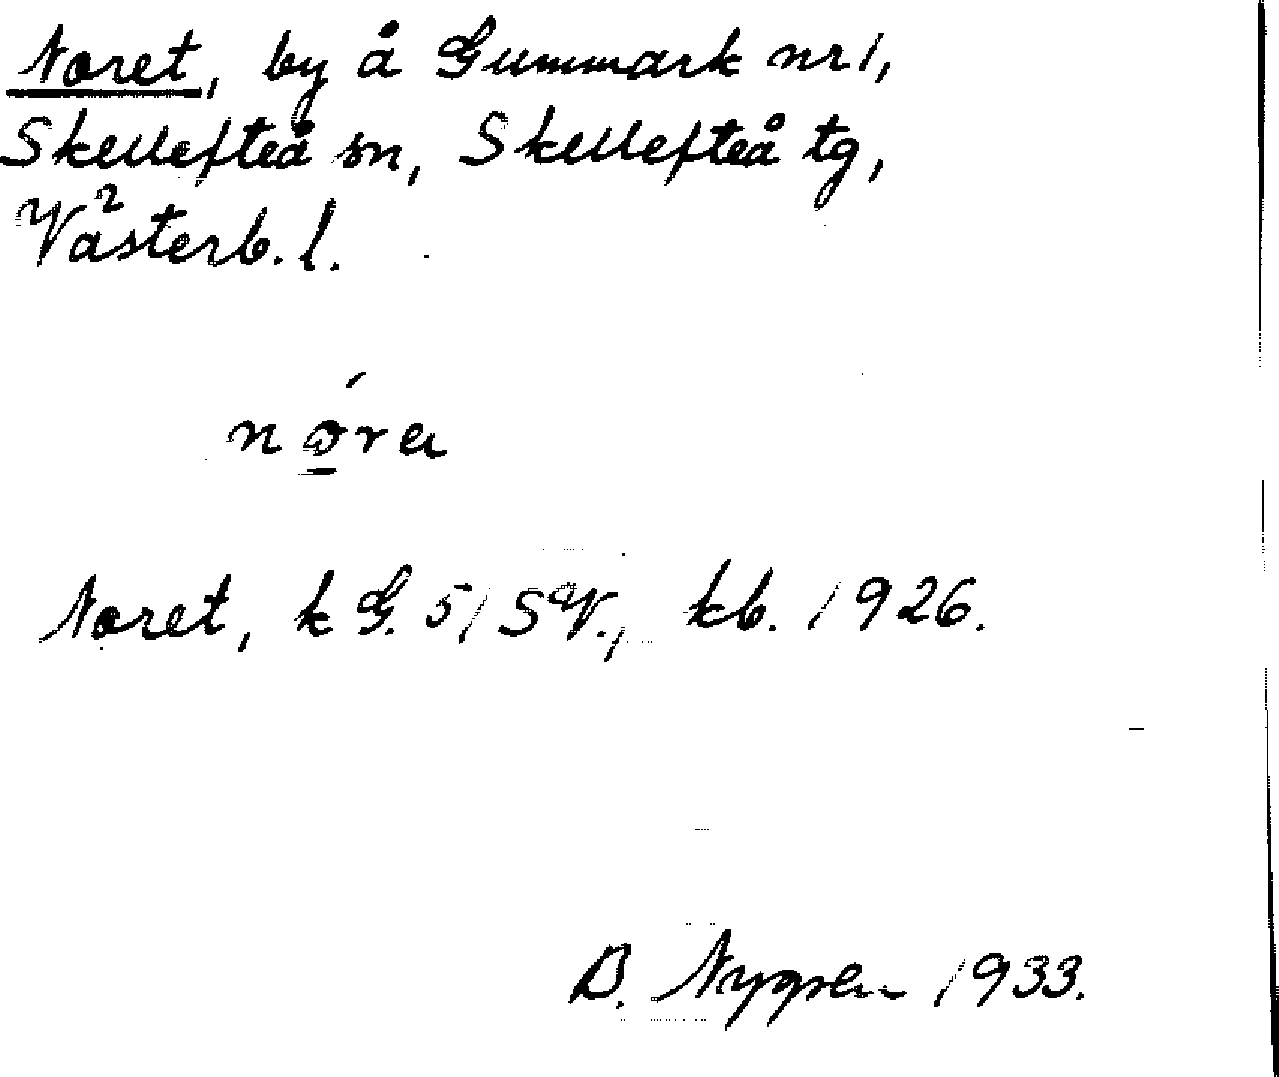 Noret, by å Gummark nr 1,
Skellefteå sn, Skellefteå tg,
Västerb. l.
nǿ̱ra
Noret, k G. 5/SV., kb. 1926.
B. Nygren 1933.